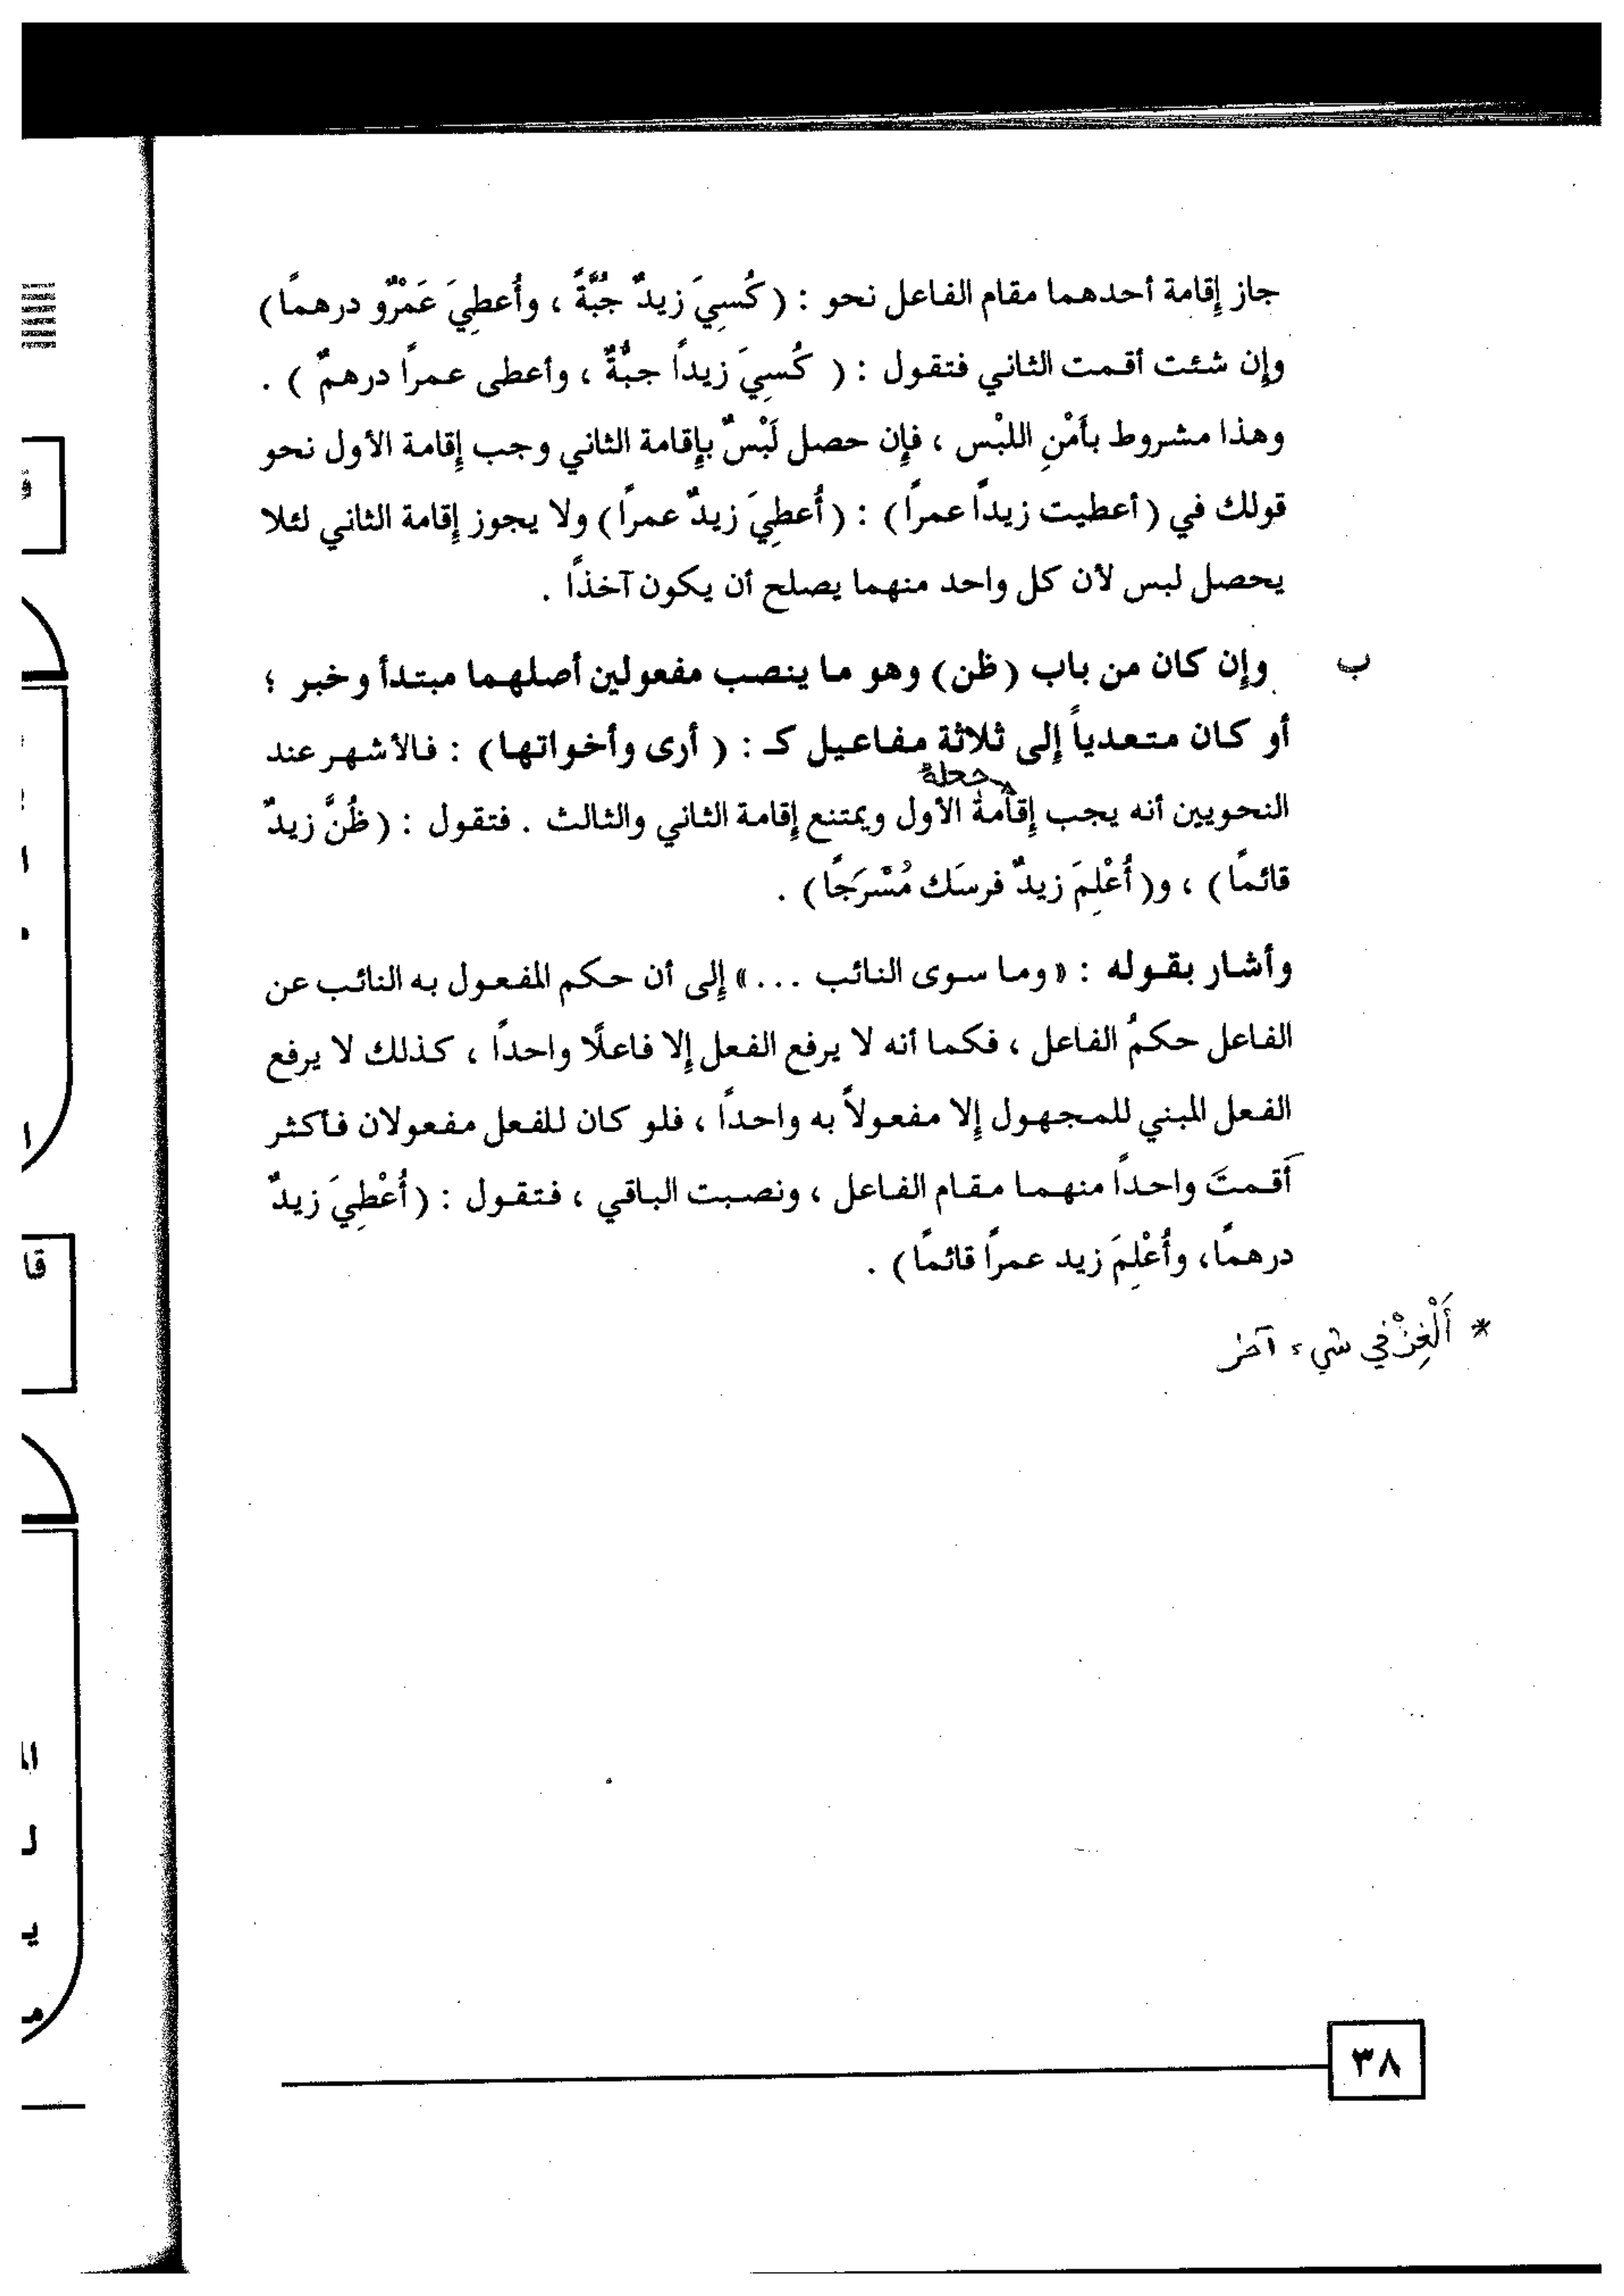 جاز إقامة أحدهما مقام الفاعل نحو : ( كُسِيَ زيدٌ جُبَّةً ، وأُعطِيَ عَمْرٌو درهمًا )
وإن شئت أقمت الثاني فتقول : ( كُسِيَ زيداً جبَّةٌ ، وأعطى عمرًا درهمٌ ) .
وهذا مشروط بأَمْنِ اللبْس ، فإن حصل لَبْسٌ بإقامة الثاني وجب إقامة الأول نحو
قولك في ( أعطيت زيداً عمرًا ) : ( أُعطِيَ زيدٌ عمرًا ) ولا يجوز إقامة الثاني لئلا
يحصل لبس لأن كل واحد منهما يصلح أن يكون آخذًا .
ب وإن كان من باب ( ظن ) وهو ما ينصب مفعولين أصلهما مبتدأ وخبر ؛
أو كان متعدياً إلى ثلاثة مفاعيل كـ : ( أرى وأخواتها ) : فالأشهر عند
جعله
النحويين أنه يجب إقامة الأول ويمتنع إقامة الثاني والثالث . فتقول : ( ظُنَّ زيدٌ
قائمًا ) ، و( أُعْلِمَ زيدٌ فرسَك مُسْرَجًا ) .
وأشار بقوله : « وما سوى النائب ... » إلى أن حكم المفعول به النائب عن
الفاعل حكمُ الفاعل ، فكما أنه لا يرفع الفعل إلا فاعلًا واحداً ، كذلك لا يرفع
الفعل المبني للمجهول إلا مفعولاً به واحداً ، فلو كان للفعل مفعولان فأكثر
أقمتَ واحداً منهما مقام الفاعل ، ونصبت الباقي ، فتقول : ( أُعْطِيَ زيدٌ
درهمًا، وأُعْلِمَ زيد عمرًا قائمًا ) .
* أَلْغِزْ في شيء آخر
٣٨
قا